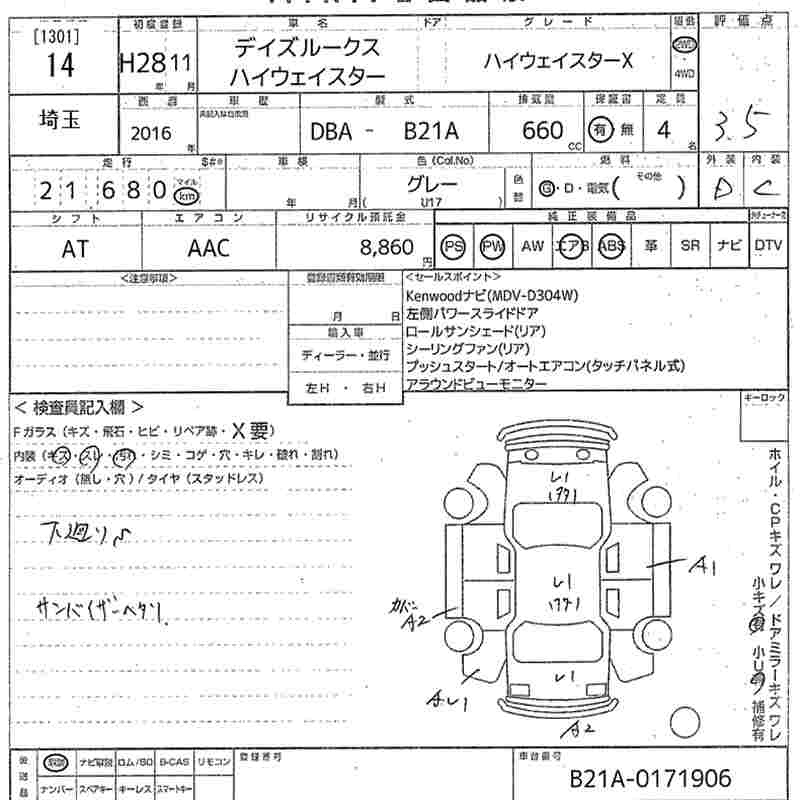 初度登録 車名 ドア グレード 評価点
[1301]
14 H28 11 デイズルークス ハイウェイスターX 2WD
年 月 ハイウェイスター 4WD
埼玉 車歴 型式 排気量 保証書 定員 3.5
2016 年 DBA - B21A 660 CC 有 無 4 名
走行 $#* 車検 色(Col.No) 燃料 外装 内装
21 680 マイル km 年 月 グレー 色替 G・D・電気( その他 ) D C
( U17 )
シフト エアコン リサイクル預託金 純正装備品
AT AAC 8,860 円 PS PW AW エアB ABS 革 SR ナビ DTV
<注意事項> <セールスポイント>
Kenwoodナビ(MDV-D304W)
月 日 左側パワースライドドア
輸入車 ロールサンシェード(リア)
ディーラー・並行 シーリングファン(リア)
プッシュスタート/オートエアコン(タッチパネル式)
左H ・ 右H アラウンドビューモニター
< 検査員記入欄 > キーロック
Fガラス (キズ・飛石・ヒビ・リペア跡・X要)
内装 (キズ・スレ・汚れ・シミ・コゲ・穴・キレ・破れ・割れ)
オーディオ (無し・穴) / タイヤ (スタッドレス)
下廻りS
サンバイザーヘタリ
レ1
レ1
レ1
A1
カバー
A2
Aレ1
A2
ホイル・CPキズ ワレ / ドアミラーキズ ワレ
後送品 取説 ナビ取説 ロム/SD B-CAS リモコン 登録番号 車台番号
ナンバー スペアキー キーレス スマートキー B21A-0171906